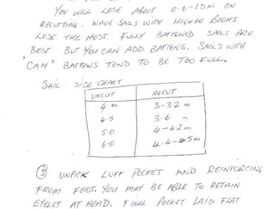 YOU WILL LOSE ABOUT 0·6-1·5M ON
RECUTTING. WAVE SAILS WITH HIGHER BOOMS
LOSE THE MOST. FULLY BATTENED SAILS ARE
BEST BUT YOU CAN ADD BATTENS. SAILS WITH
"CAM" BATTENS TEND TO BE TOO FULL.
SAIL SIZE CHART
UNCUT RECUT
4 M 3-3.2 M
4.5 3.6 M
5.0 4-4.2 M
6.0 4.4-4.5M
② UNPICK LUFF POCKET AND REINFORCING
FROM FOOT. YOU MAY BE ABLE TO RETAIN
EYELET AT HEAD. FINAL POCKET LAID FLAT